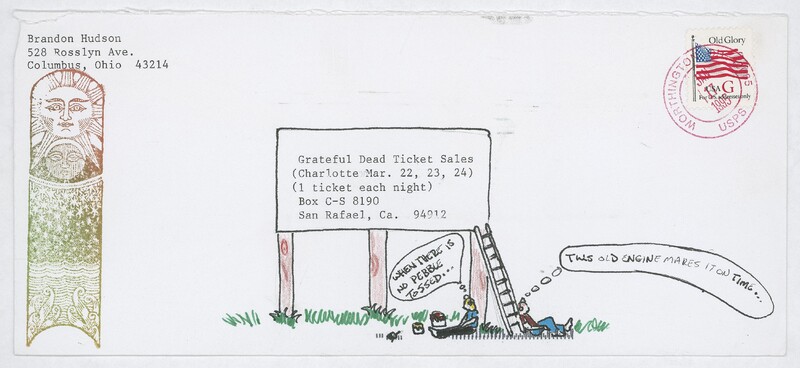 Brandon Hudson
528 Rosslyn Ave.
Columbus, Ohio 43214
Old Glory
USA G
For U.S. addresses only
WORTHINGTON
1995
USPS
Grateful Dead Ticket Sales
(Charlotte Mar. 22, 23, 24)
(1 ticket each night)
Box C-S 8190
San Rafael, Ca. 94912
WHEN THERE IS
NO PEBBLE
TOSSED...
THIS OLD ENGINE MAKES IT ON TIME...